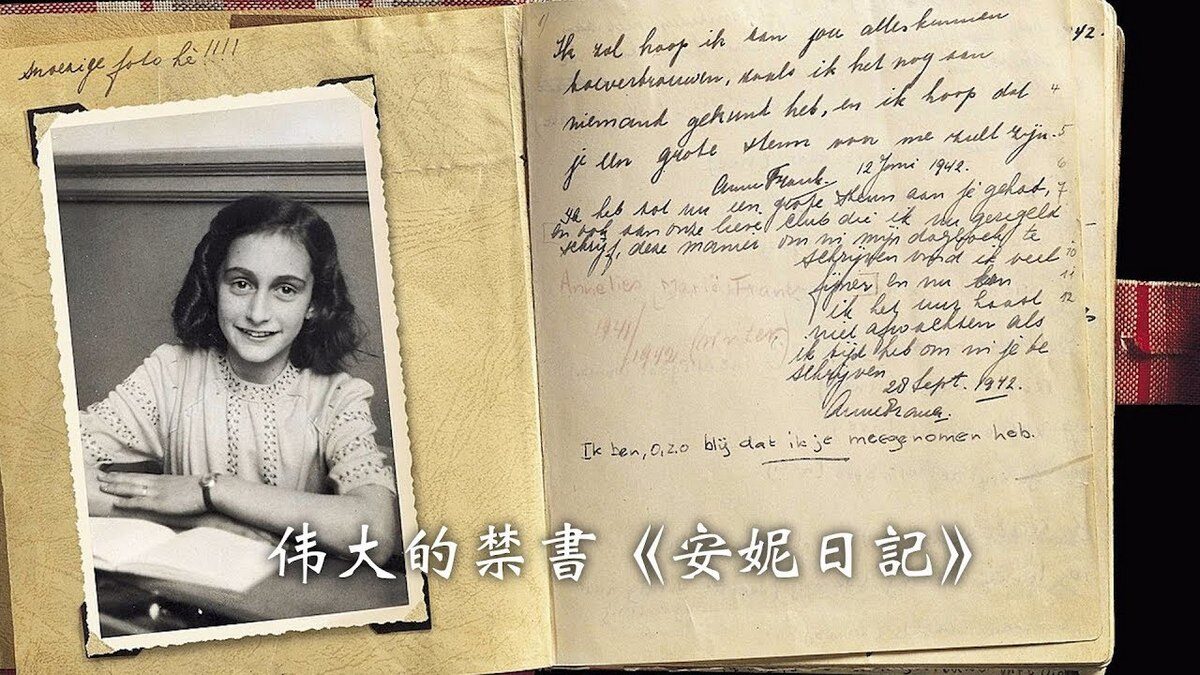 snoezige foto hè!!!!
42.
Ik zal hoop ik aan jou alles kunnen
toevertrouwen, zoals ik het nog aan
niemand gekund heb, en ik hoop dat
je een grote steun voor me zult zijn.
Anne Frank. 12 Juni 1942.
Ik heb tot nu een grote steun aan je gehad,
en ook aan onze lieve club die ik nu geregeld
schrijf, deze manier om in mijn dagboek te
schrijven vind ik veel
fijner en nu kan
ik het uur haast
niet afwachten als
ik tijd heb om in je te
schrijven
28 Sept. 1942.
Anne Frank.
Annelies Marie Frank
1941/
1942 (winter)
Ik ben, o, zo blij dat ik je meegenomen heb.
4
5
6
7
10
11
12
伟大的禁書《安妮日記》